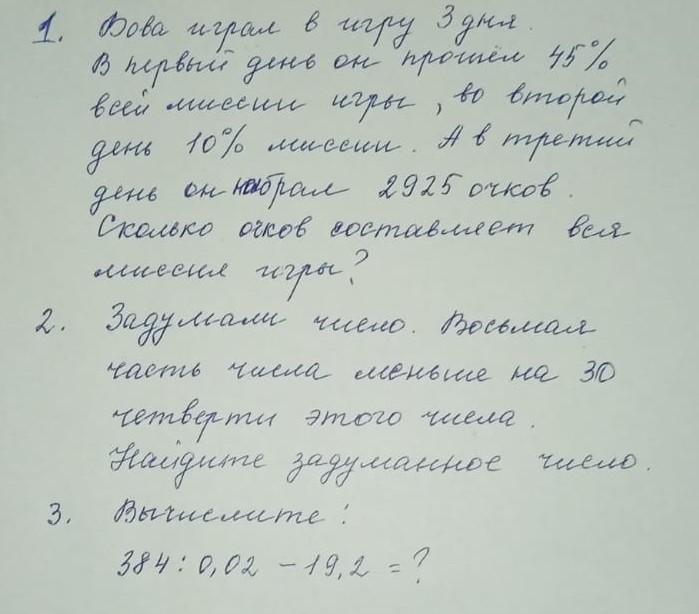 1. Вова играл в игру 3 дня.
В первый день он прошёл 45%
всей миссии игры, во второй
день 10% миссии. А в третий
день он набрал 2925 очков.
Сколько очков составляет вся
миссия игры?
2. Задумали число. Восьмая
часть числа меньше на 30
четверти этого числа.
Найдите задуманное число.
3. Вычислите:
384 : 0,02 - 19,2 = ?